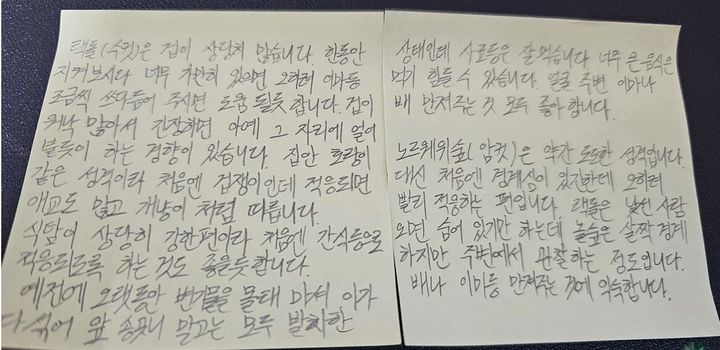 랙돌(수컷)은 겁이 상당히 많습니다. 한동안
지켜보시다 너무 가만히 있으면 오히려 이마등
조금씩 쓰다듬어 주시면 도움 될듯 합니다. 겁이
워낙 많아서 긴장하면 아예 그 자리에 얼어
붙듯이 하는 경향이 있습니다. 집안 호랑이
같은 성격이라 처음엔 겁쟁이인데 적응되면
애교도 많고 개냥이 처럼 따릅니다.
식탐이 상당히 강한편이라 처음엔 간식등으로
적응되도록 하는 것도 좋을듯합니다.
예전에 오랫동안 변기물을 몰래 마셔 이가
다 썩어 앞 송곳니 말고는 모두 발치한
상태인데 사료등은 잘 먹습니다. 너무 큰 음식은
먹기 힘들 수 있습니다. 얼굴 주변 이마나
배 만져주는 것 모두 좋아 합니다.
노르웨위숲(암컷)은 약간 도도한 성격입니다.
대신 처음엔 경계심이 있긴한데 오히려
빨리 적응하는 편입니다. 랙돌은 낯선 사람
오면 숨어 있기만 하는데 놀숲은 살짝 경계
하지만 주변에서 관찰하는 정도입니다.
배나 이마등 만져주는 것에 익숙합니다.